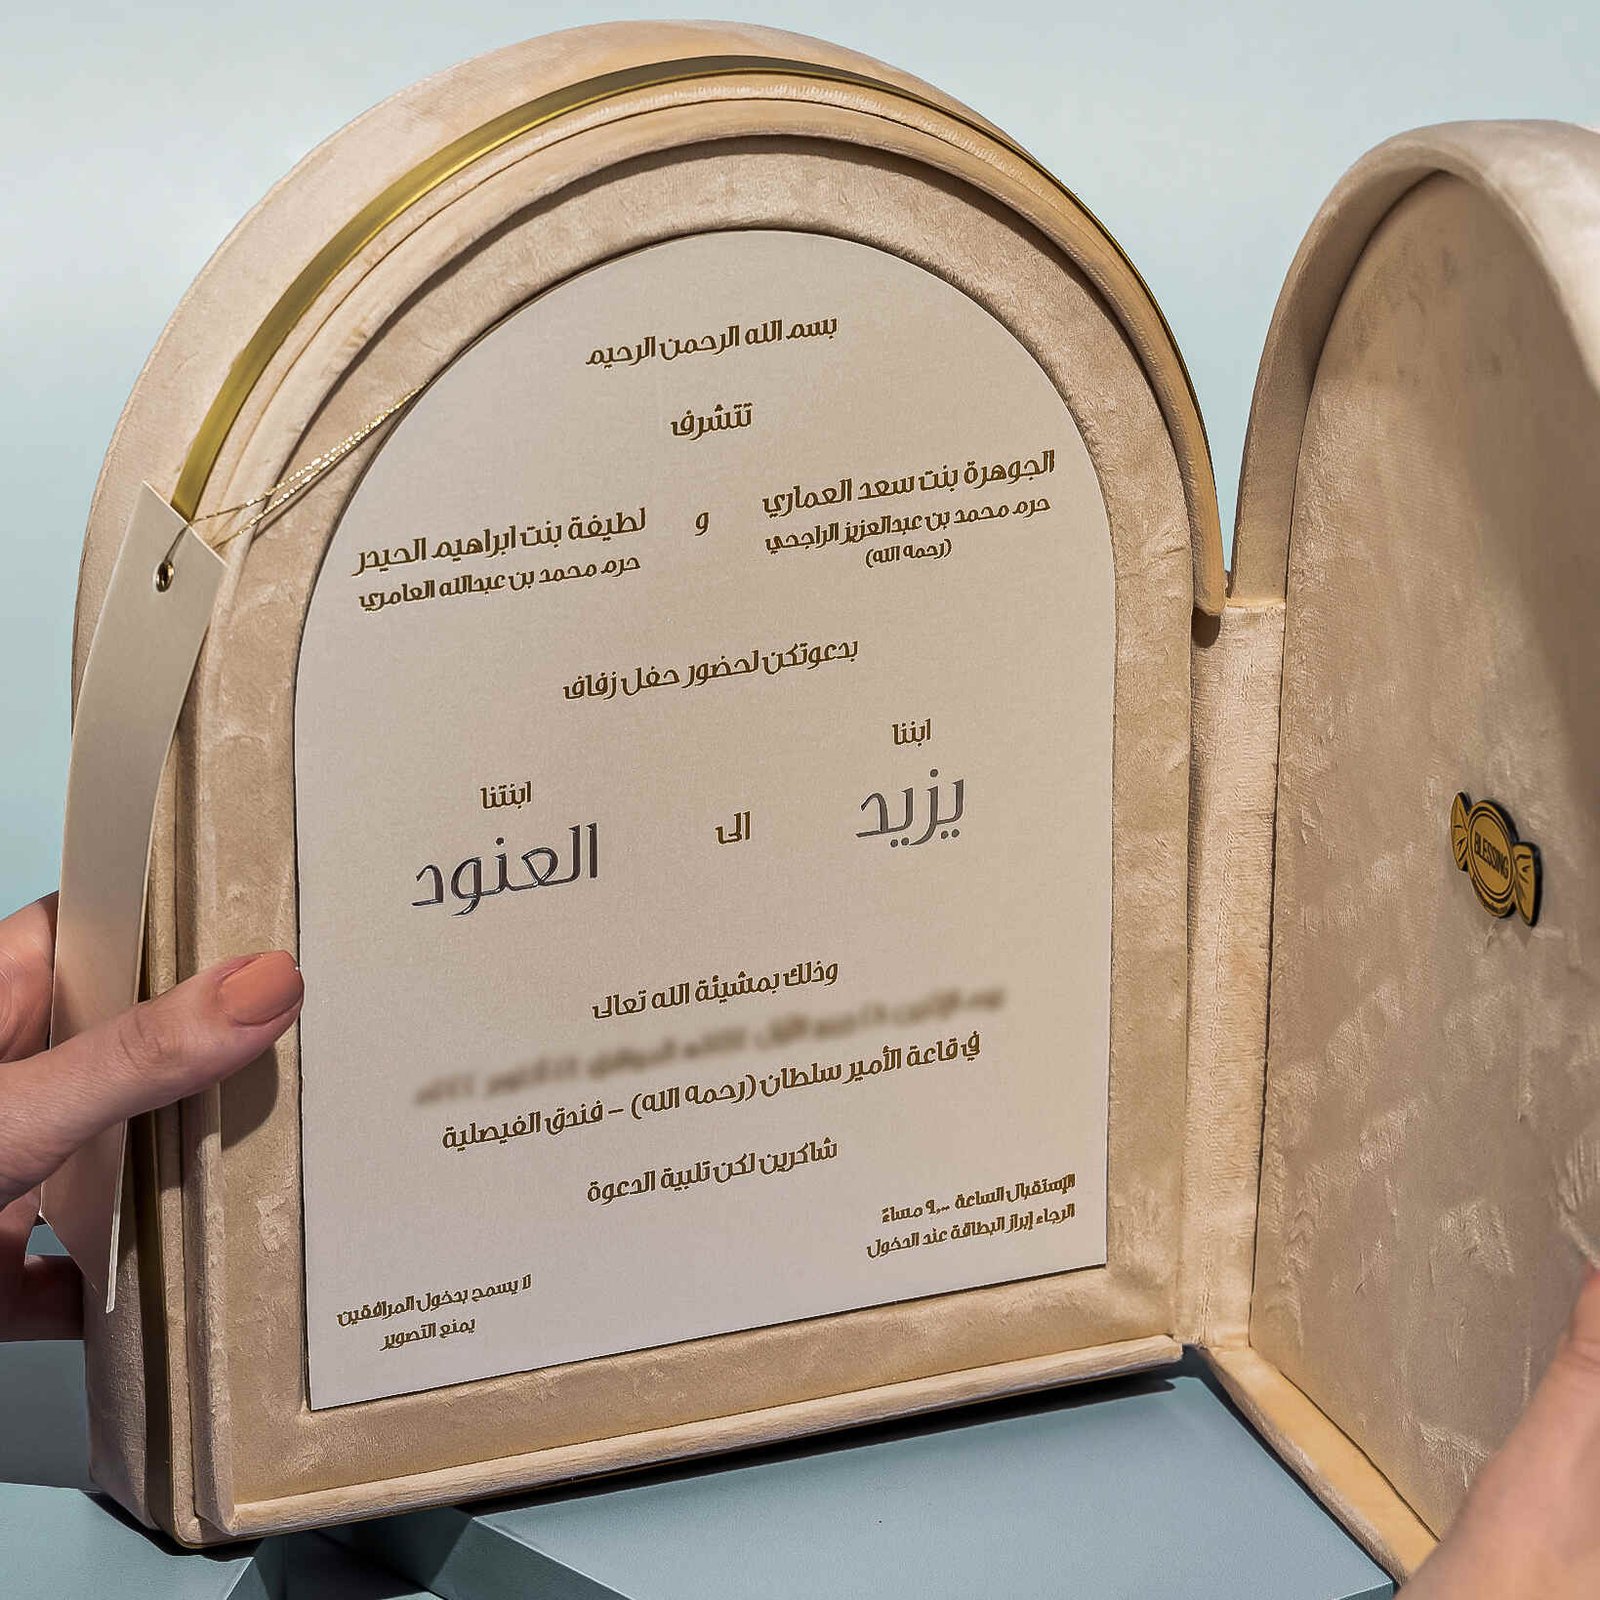 بسم الله الرحمن الرحيم
تتشرف
الجوهرة بنت سعد العماري
حرم محمد بن عبدالعزيز الراجحي
(رحمه الله)
و
لطيفة بنت ابراهيم الحيدر
حرم محمد بن عبدالله العامري
بدعوتكن لحضور حفل زفاف
ابننا
يزيد
الى
ابنتنا
العنود
وذلك بمشيئة الله تعالى
في قاعة الأمير سلطان (رحمه الله) - فندق الفيصلية
شاكرين لكن تلبية الدعوة
الإستقبال الساعة ٩,٠٠ مساءً
الرجاء إبراز البطاقة عند الدخول
لا يسمح بدخول المرافقين
يمنع التصوير
BLESSING